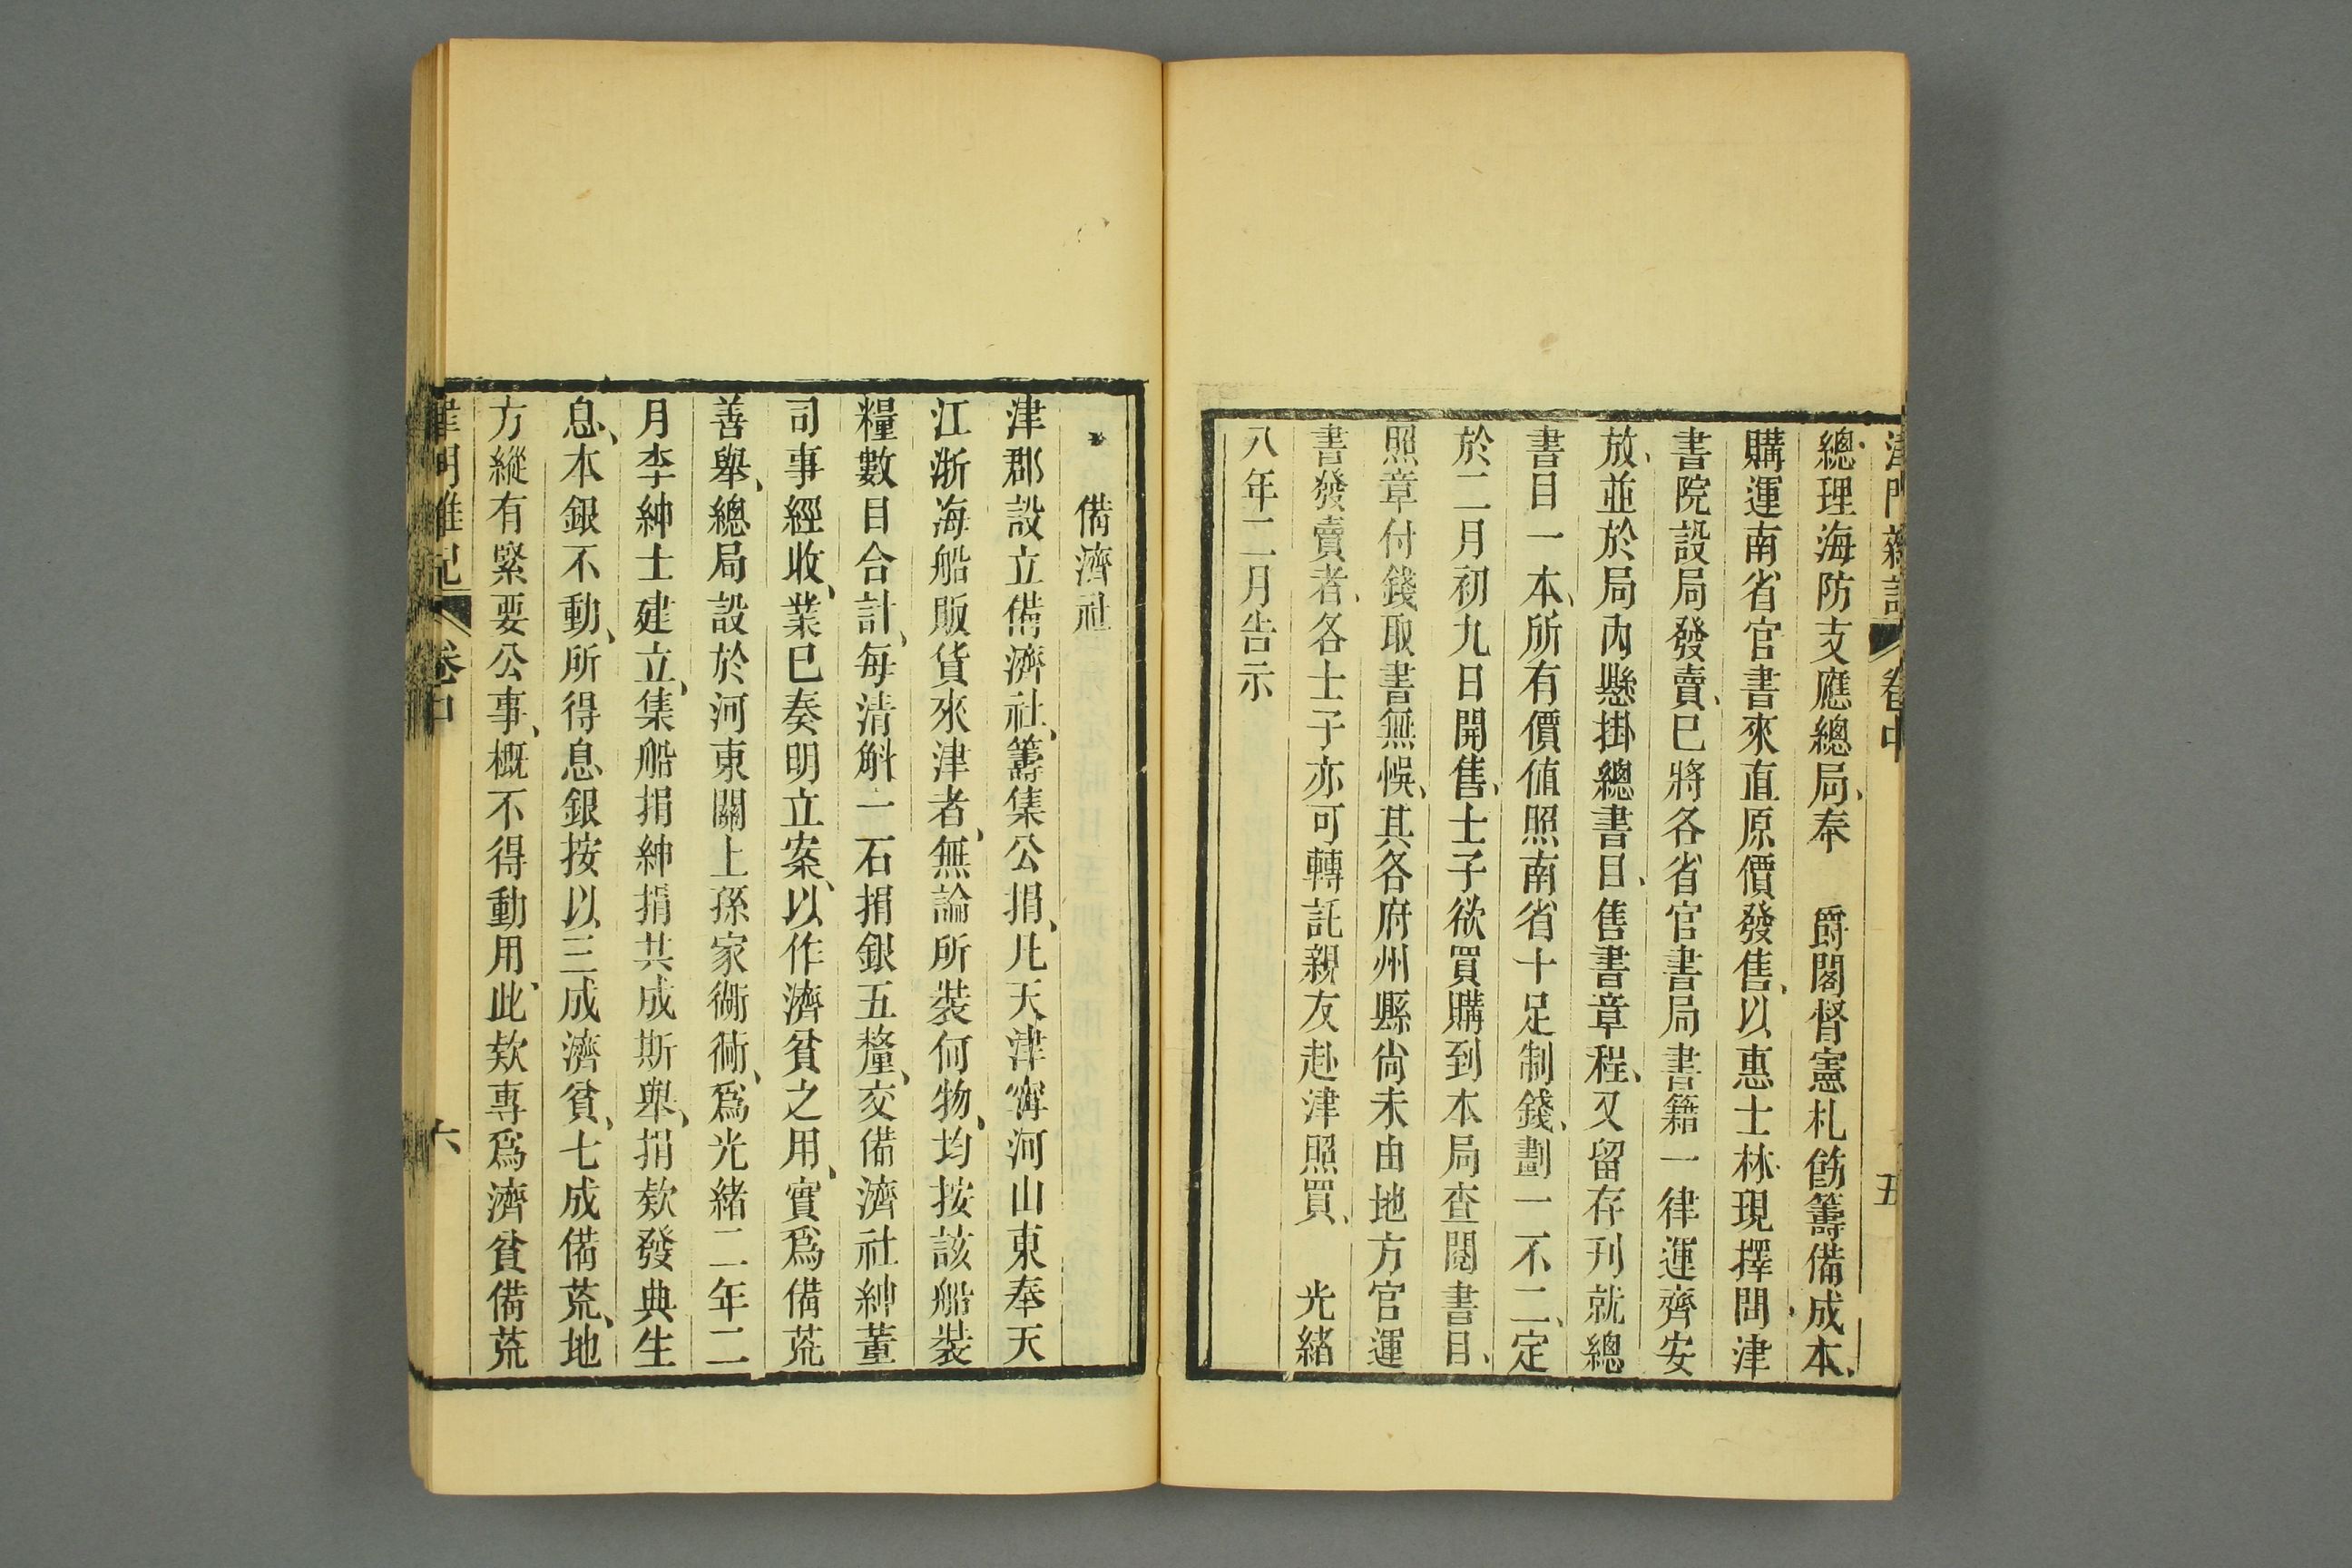 津門雜記 卷中 五
總理海防支應總局、奉 爵閣督憲札飭籌備成本、
購運南省官書來直原價發售、以惠士林、現擇問津
書院設局發賣、已將各省官書局書籍一律運齊安
放、並於局內懸掛總書目、售書章程、又留存刊就總
書目一本、所有價值照南省十足制錢、劃一不二、定
於二月初九日開售、士子欲買購到本局查閱書目、
照章付錢取書無悞、其各府州縣尙未由地方官運
書發賣者、各士子亦可轉託親友赴津照買、 光緒
八年二月告示
備濟社
津郡設立備濟社、籌集公捐、凡天津寧河山東奉天
江浙海船販貨來津者、無論所裝何物、均按該船裝
糧數目合計、每清斛一石捐銀五釐、交備濟社紳董
司事經收、業已奏明立案、以作濟貧之用、實爲備荒
善舉、總局設於河東關上孫家衚衕、爲光緒二年二
月李紳士建立、集船捐紳捐共成斯舉、捐欵發典生
息、本銀不動、所得息銀按以三成濟貧、七成備荒、地
方縱有緊要公事、槪不得動用、此欵專爲濟貧備荒
津門雜記 卷中 六